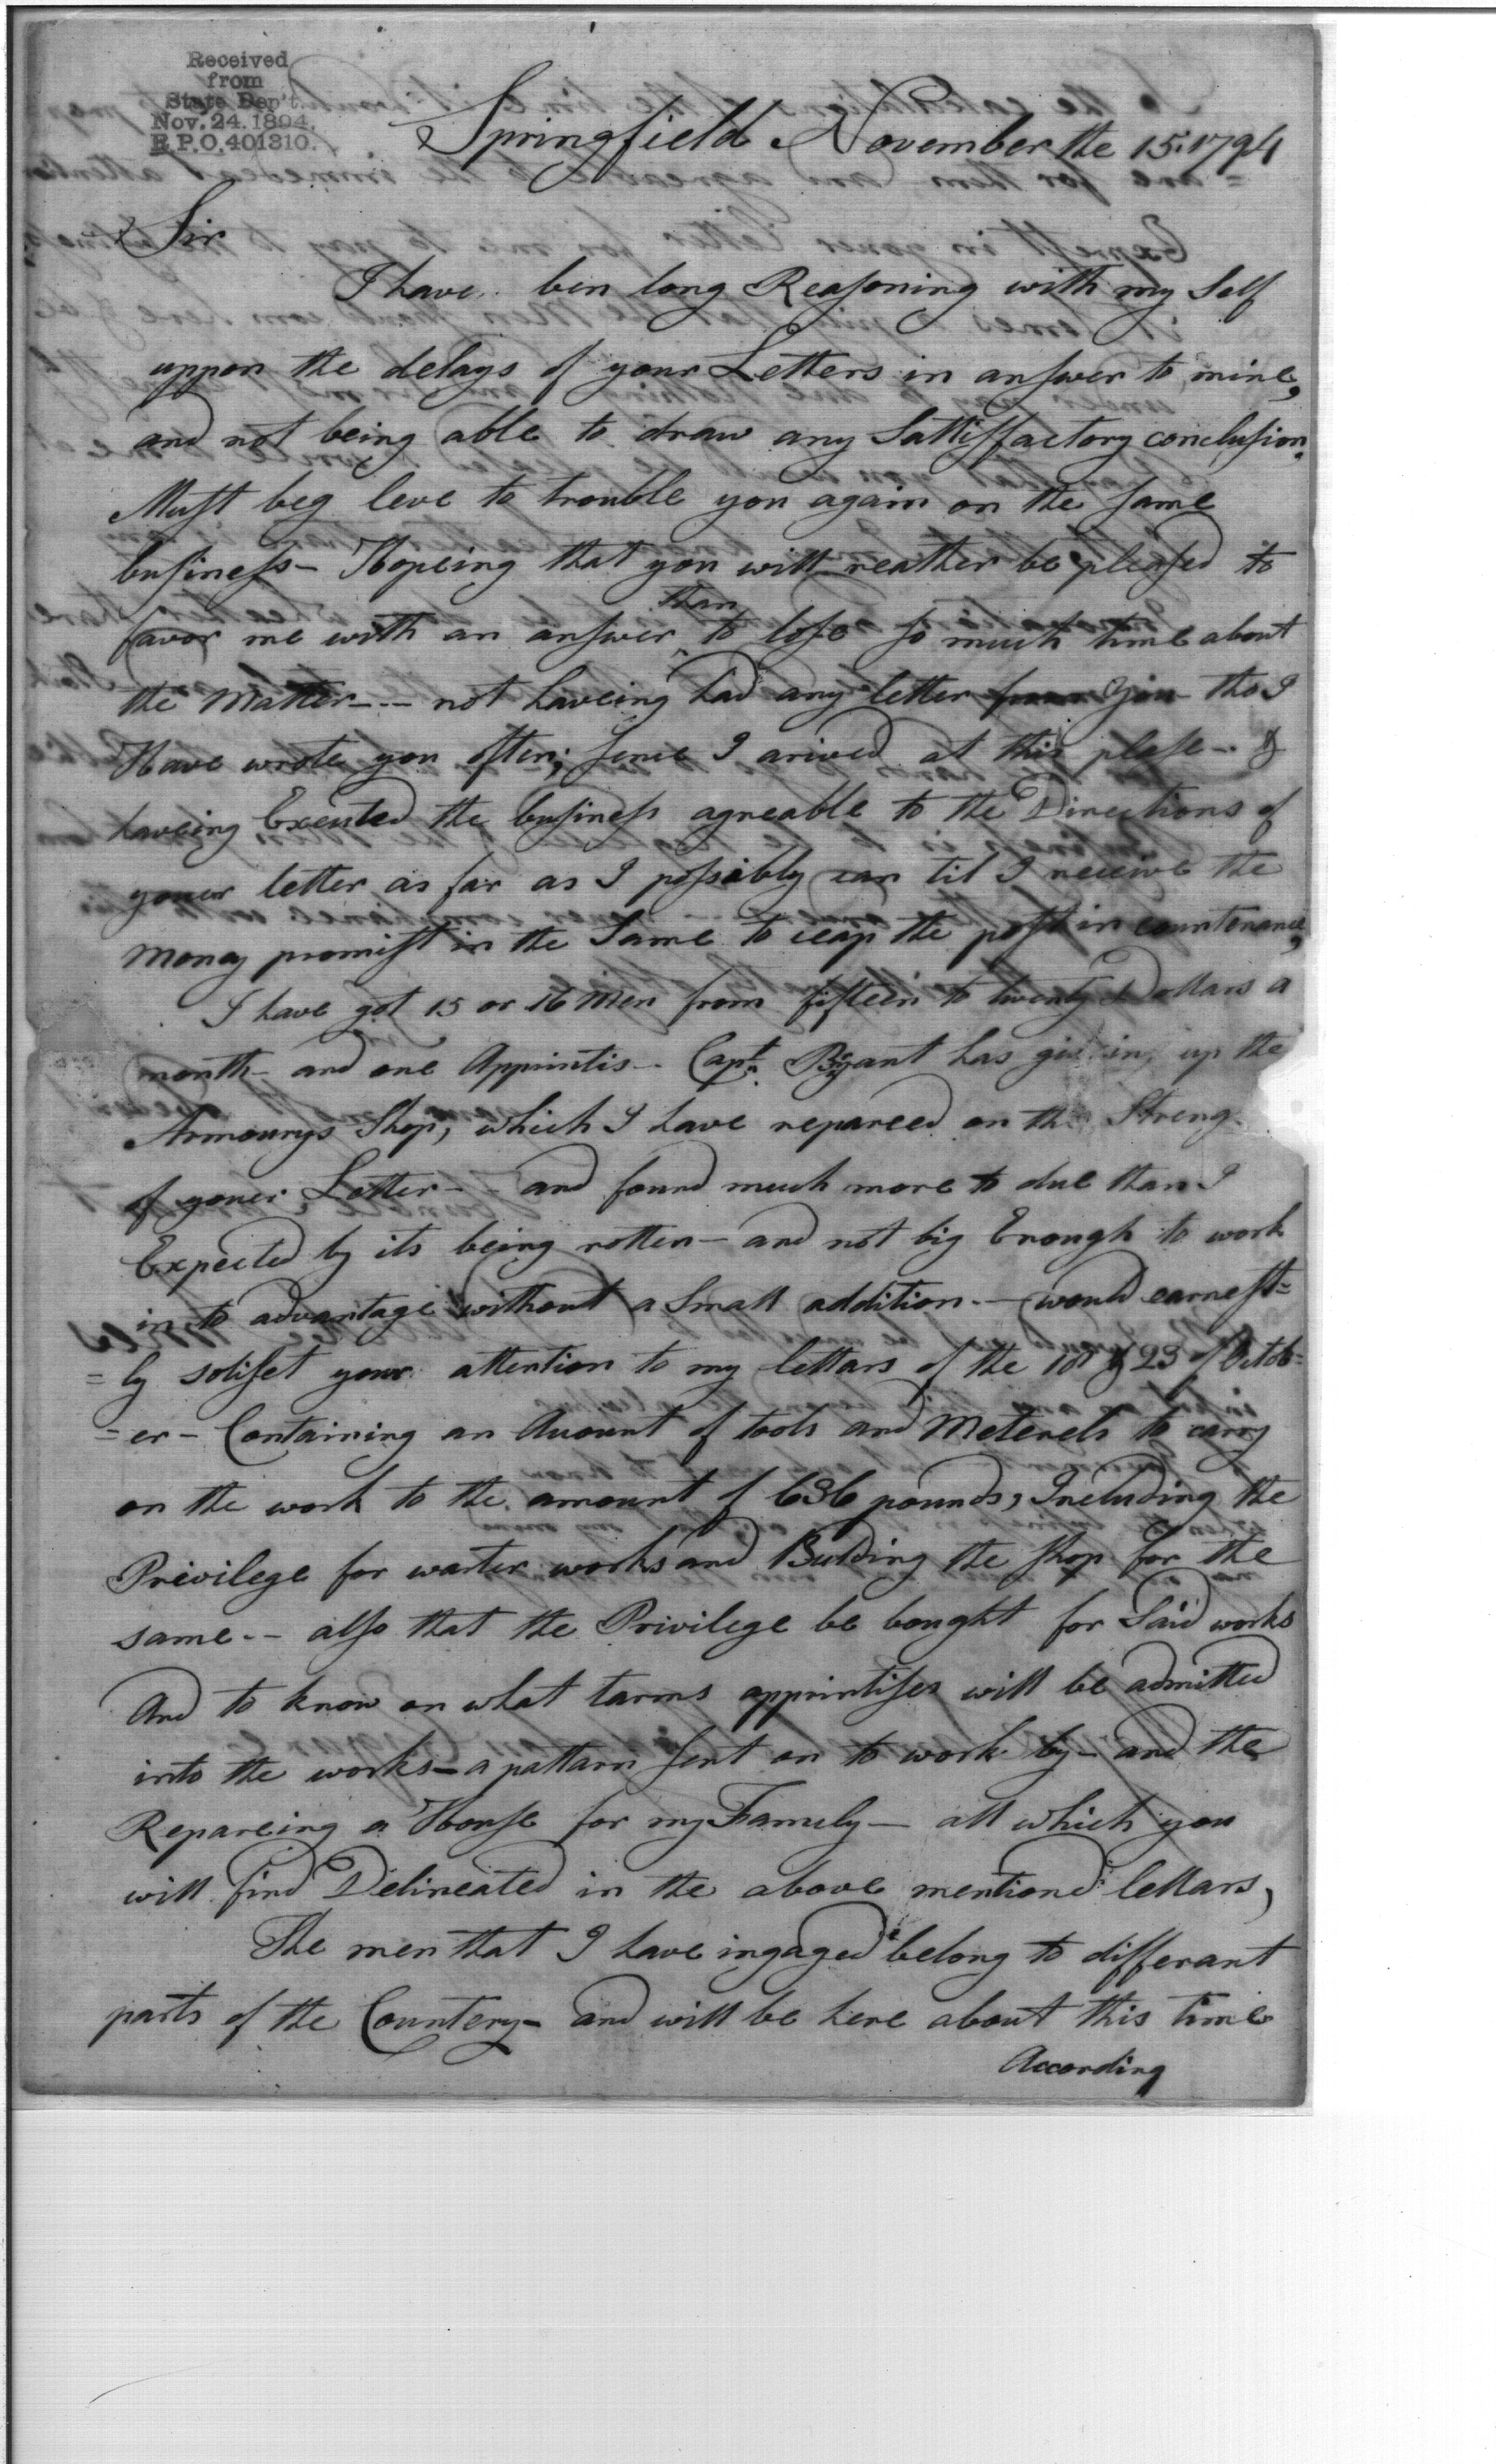 Received
from
State Dep't.
Nov. 24. 1894.
R.P.O. 401310.
Springfield November the 15: 1794
Sir
I have ben long Reasoning with my Self
uppon the delays of your Letters in answer to mine,
and not being able to draw any Sattisfactory conclusion.
Must beg leve to trouble you again on the same
business – Hopeing that you will reather be pleased to
favor me with an answer than to lose so much time about
the Matter -- not haveing had any letter from you tho I
Have wrote you often; sence I arived at this plase – &
haveing Executed the business agreable to the Directions of
youer letter as far as I possibly can til I receive the
money promist in the Same to ceap the post in countenance,
I have got 15 or 16 Men from fifteen to twenty Dollars a
month – and one Apprintis – Capt. Bryant has giv in, up the
Armourys Shop, which I have repareed on the Streng
of youer Letter – and found much more to due than I
Expected by its being rotten – and not big Enough to work
in to advantage without a Small addition. – would earnest=
=ly soliset your attention to my lettars of the 10 & 23 of Octob=
=er – Containing an Acount of tools and Meterels to carry
on the work to the amount of 636 pounds, Including the
Privilege for warter works and Bulding the shop for the
same -- also that the Privilege be bought for Said works
And to know on what tarms apprintises will be admitted
into the works – a pattarn sent on to work by – and the
Repareing a House for my Family – all which you
will find Delineated in the above mentiond lettars,
The men that I have ingaged belong to differant
parts of the Countery – and will be here about this time
According